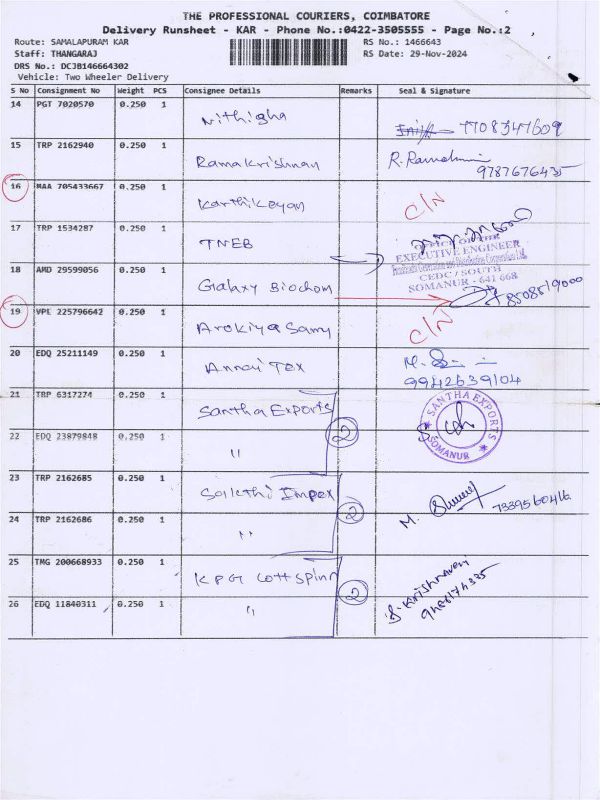 THE PROFESSIONAL COURIERS, COIMBATORE
Delivery Runsheet - KAR - Phone No.:0422-3505555 - Page No.:2
Route: SAMALAPURAM KAR
RS No.: 1466643
Staff: THANGARAJ
RS Date: 29-Nov-2024
DRS No.: DCJB146664302
Vehicle: Two Wheeler Delivery
S No Consignment No Weight PCS Consignee Details Remarks Seal & Signature
14 PGT 7020570 0.250 1 Nithigha 7708347609
15 TRP 2162940 0.250 1 Ramakrishnan R. Ramakrishnan 9787676435
16 MAA 705433667 0.250 1 Karthikeyan C/N
17 TRP 1534287 0.250 1 TNEB
EXECUTIVE ENGINEER
CEDC / SOUTH
SOMANUR - 641 668
18 AMD 29599056 0.250 1 Galaxy Biochem 8508519000
19 VPL 225796642 0.250 1 Arokiya Samy C/N
20 EDQ 25211149 0.250 1 Annai Tex M.
9942639104
21 TRP 6317274 0.250 1 Santha Exports 2 SANTHA EXPORTS SOMANUR
22 EDQ 23879848 0.250 1 "
23 TRP 2162685 0.250 1 Sakthi Impex 2 M. 7339560416
24 TRP 2162686 0.250 1 "
25 TMG 200668933 0.250 1 KPG Cottspinn 2 S. Krishnaveni
26 EDQ 11840311 0.250 1 "